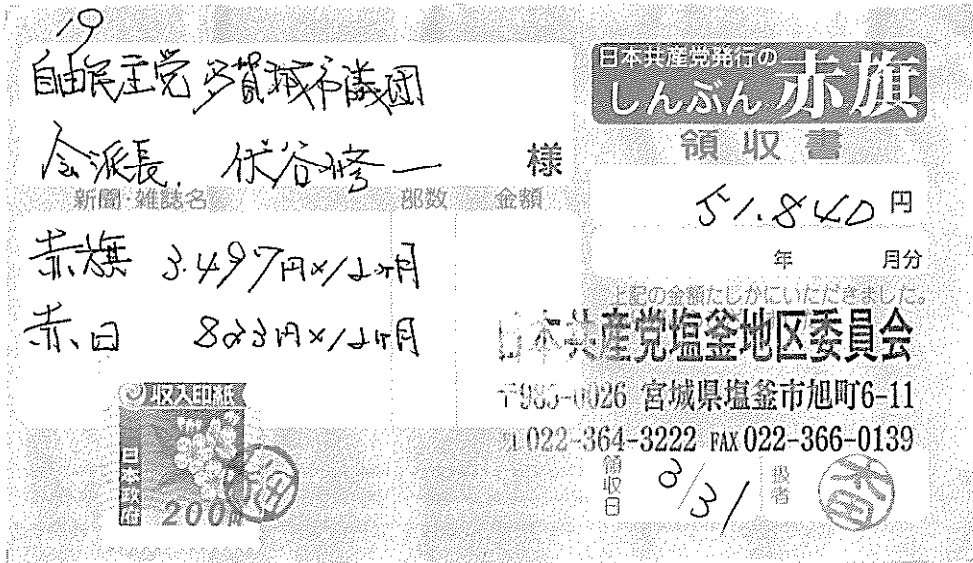 19
自由民主党 多賀城市議団
会派長. 伏谷修一 様
新聞・雑誌名 部数 金額
赤旗 3.497円×12ヶ月
赤日 823円×12ヶ月
収入印紙
日本政府
200円
日本共産党発行の
しんぶん赤旗
領収書
51.840円
年 月分
上記の金額たしかにいただきました。
日本共産党塩釜地区委員会
〒985-0026 宮城県塩釜市旭町6-11
022-364-3222 FAX 022-366-0139
領収日 3/31 扱者